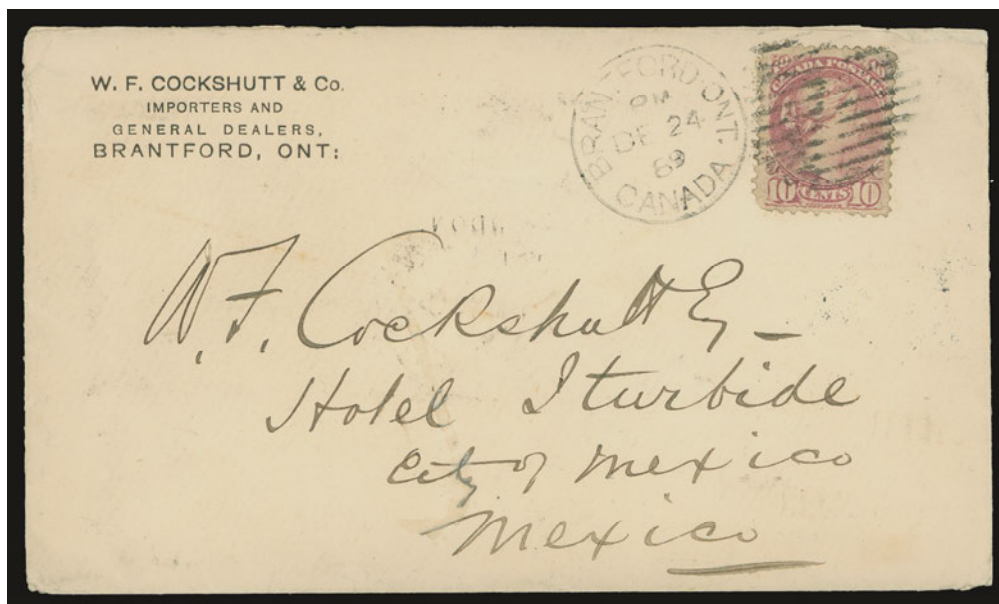 W. F. COCKSHUTT & Co.
IMPORTERS AND
GENERAL DEALERS,
BRANTFORD, ONT:
BRANTFORD ONT.
PM
DE 24
89
CANADA
CANADA POSTAGE
10 CENTS 10
W. F. Cockshutt Esq
Hotel Iturbide
City of Mexico
Mexico